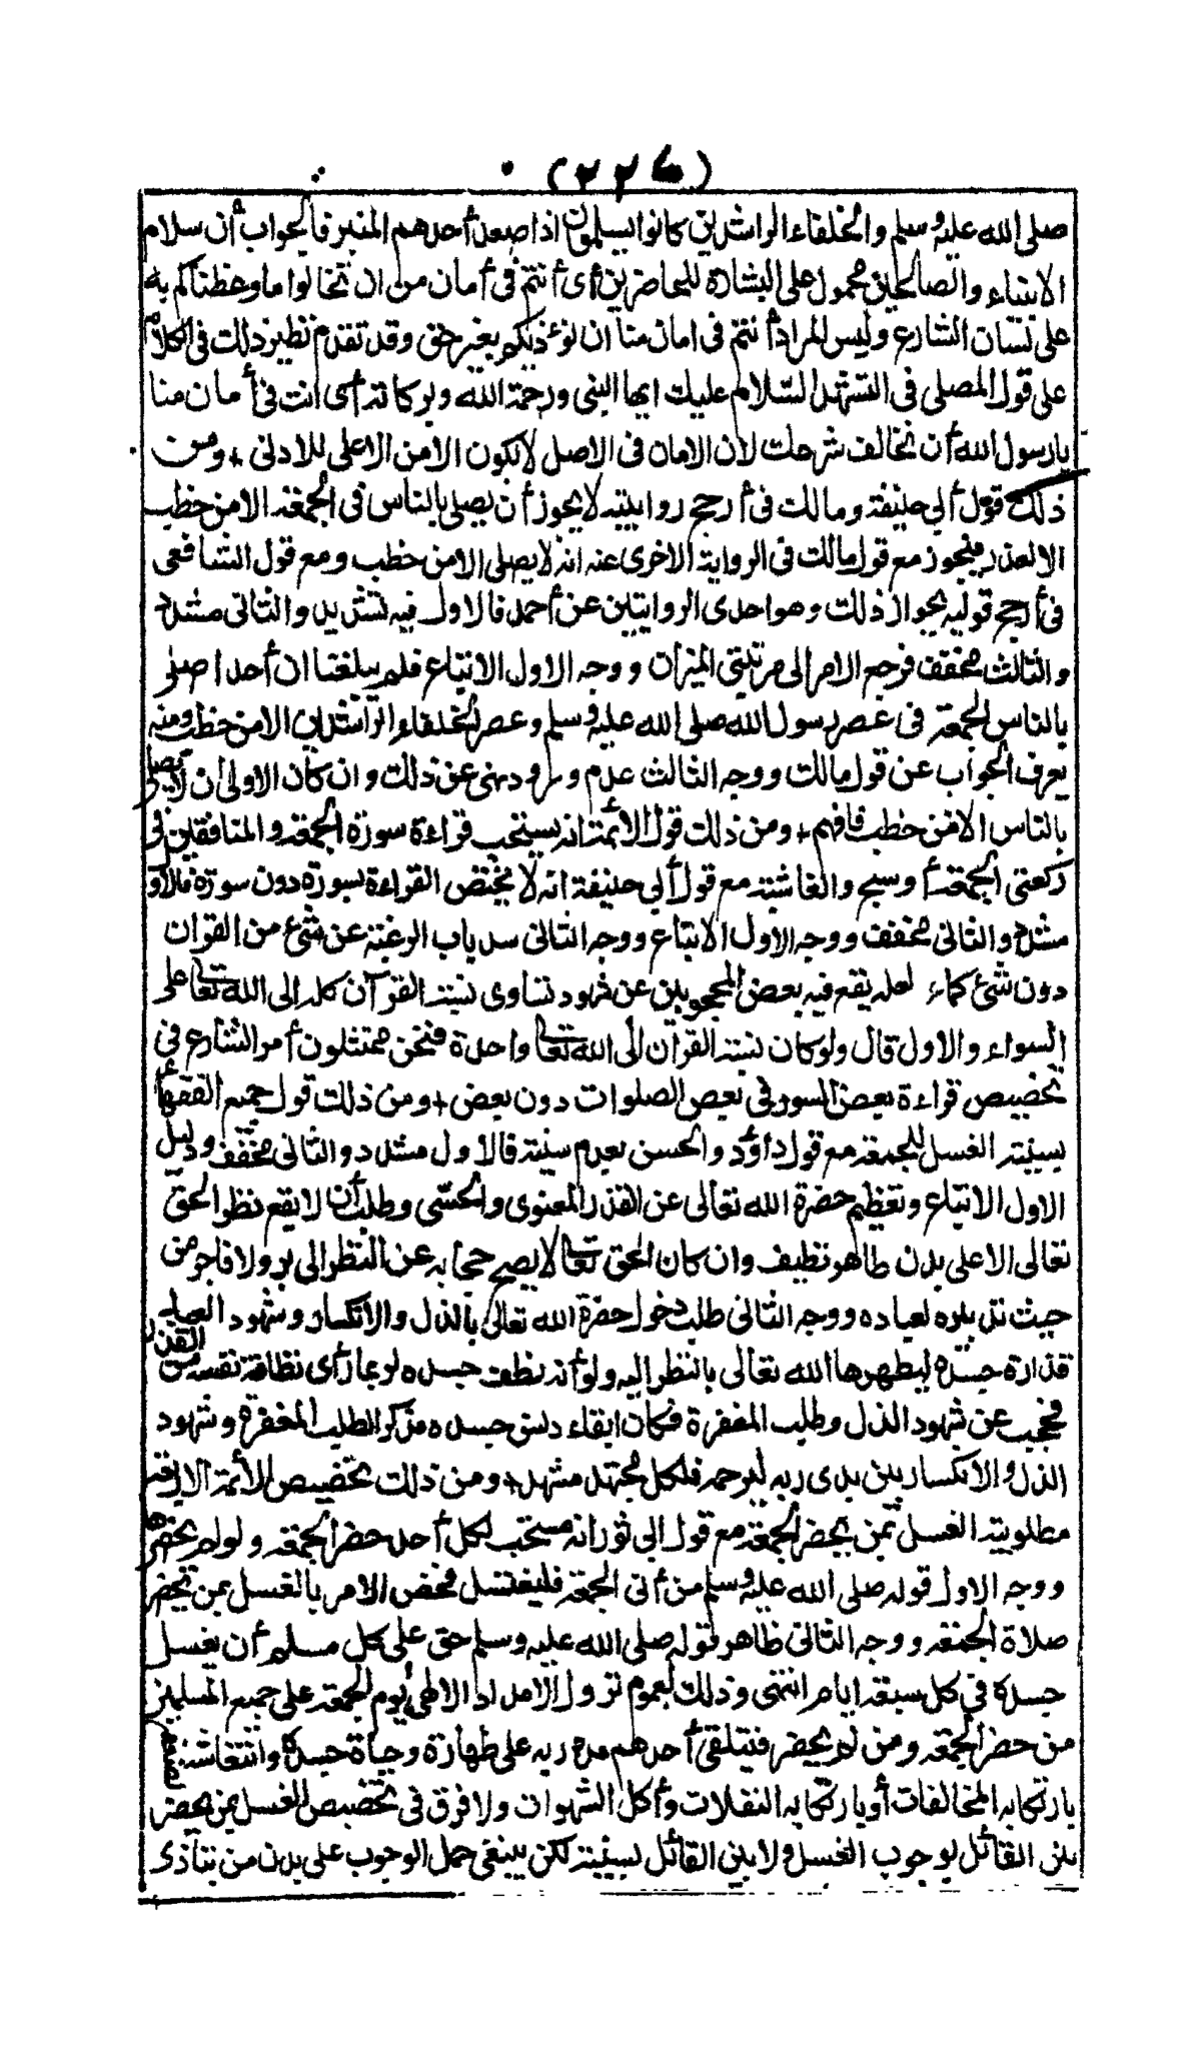 (٢٢٦)
صلى الله عليه وسلم والخلفاء الراشدين كانوا يسلمون اذا صعد أحدهم المنبر فالجواب أن سلام
الانبياء والصالحين محمول على البشارة للحاضرين أى أنتم فى أمان من ان تخالفوا ما وعظناكم به
على لسان الشارع وليس المراد أنتم فى امان منا ان نؤذيكم بغير حق وقد تقدم نظير ذلك فى الكلام
على قول المصلى فى التشهد السلام عليك ايها النبى ورحمة الله وبركاته أى انت فى أمان منا
يا رسول الله أن نخالف شرعك لان الامان فى الاصل لايكون الا من الاعلى للادنى + ومن
ذلك قول أبي حنيفة ومالك فى أرجح روايتيه لا يجوز أن يصلى بالناس فى الجمعة الا من خطب
الا لعذر فيجوز مع قول مالك فى الرواية الاخرى عنه انه لا يصلى الا من خطب ومع قول الشافعى
فى أرجح قوليه بجواز ذلك وهو احدى الروايتين عن أحمد فالاول فيه تشديد والثانى مشدد
والثالث مخفف فرجع الامر الى مرتبتى الميزان ووجه الاول الاتباع فلم يبلغنا ان أحدا صلى
بالناس الجمعة فى عصر رسول الله صلى الله عليه وسلم وعصر الخلفاء الراشدين الا من خطب ومنه
يعرف الجواب عن قول مالك ووجه الثالث عدم ورود نهى عن ذلك وان كان الاولى أن لا يصلى
بالناس الا من خطب فافهم + ومن ذلك قول الأئمة انه يستحب قراءة سورة الجمعة والمنافقين فى
ركعتى الجمعة أو سبح والغاشية مع قول أبي حنيفة انه لا تختص القراءة بسورة دون سورة فالاول
مشدد والثانى مخفف ووجه الاول الاتباع ووجه الثانى سد باب الرغبة عن شئ من القرآن
دون شئ كماء لعله يقع فيه بعض المحجوبين عن شهود تساوى نسبة القرآن كله الى الله تعالى على
السواء والاول قال ولو كان نسبة القرآن الى الله تعالى واحدة فنحن ممتثلون أمر الشارع فى
تخصيص قراءة بعض السور فى بعض الصلوات دون بعض + ومن ذلك قول جميع الفقهاء
بسنية الغسل للجمعة مع قول داؤد والحسن بعدم سنيته فالاول مشدد والثانى مخفف ودليل
الاول الاتباع وتعظيم حضرة الله تعالى عن القذر المعنوى والحسّى وطلب أن لا يقع نظر الحق
تعالى الا على بدن طاهر نظيف وان كان الحق تعالى لا يصح حجابه عن النظر الى بر ولا فاجر من
حيث تدبيره لعباده ووجه الثانى طلب دخول حضرة الله تعالى بالذل والانكسار وشهود العبد
قذارة جسده ليطهرها الله تعالى بالنظر اليه ولو أنه نظف جسده لربما رأى نظافة نفسه من القذر
فحجب عن شهود الذل وطلب المغفرة فكان ابقاء دنس جسده مذكرا لطلب المغفرة وشهود
الذل والانكسار بين يدى ربه ليرحمه فلكل مجتهد مشهد + ومن ذلك تخصيص الأئمة الاربعة
مطلوبية الغسل بمن يحضر الجمعة مع قول ابى ثور انه مستحب لكل أحد حضر الجمعة ولو لم يحضرها
ووجه الاول قوله صلى الله عليه وسلم من أتى الجمعة فليغتسل فخص الامر بالغسل بمن يحضر
صلاة الجمعة ووجه الثانى ظاهر قوله صلى الله عليه وسلم حق على كل مسلم أن يغسل
جسده فى كل سبعة ايام انتهى وذلك لعموم نزول الامداد الالهى يوم الجمعة على جميع المسلمين
من حضر الجمعة ومن لم يحضر فيتلقى أحدهم مدد ربه على طهارة وحياة جسده وانتعاشه
بارتكابه المخالفات أو بارتكابه الغفلات وأكل الشهوات ولا فرق فى تخصيص الغسل بمن يحضر
بين القائل بوجوب الغسل ولا بين القائل بسنيته لكن ينبغى حمل الوجوب على بدن من يتأذى